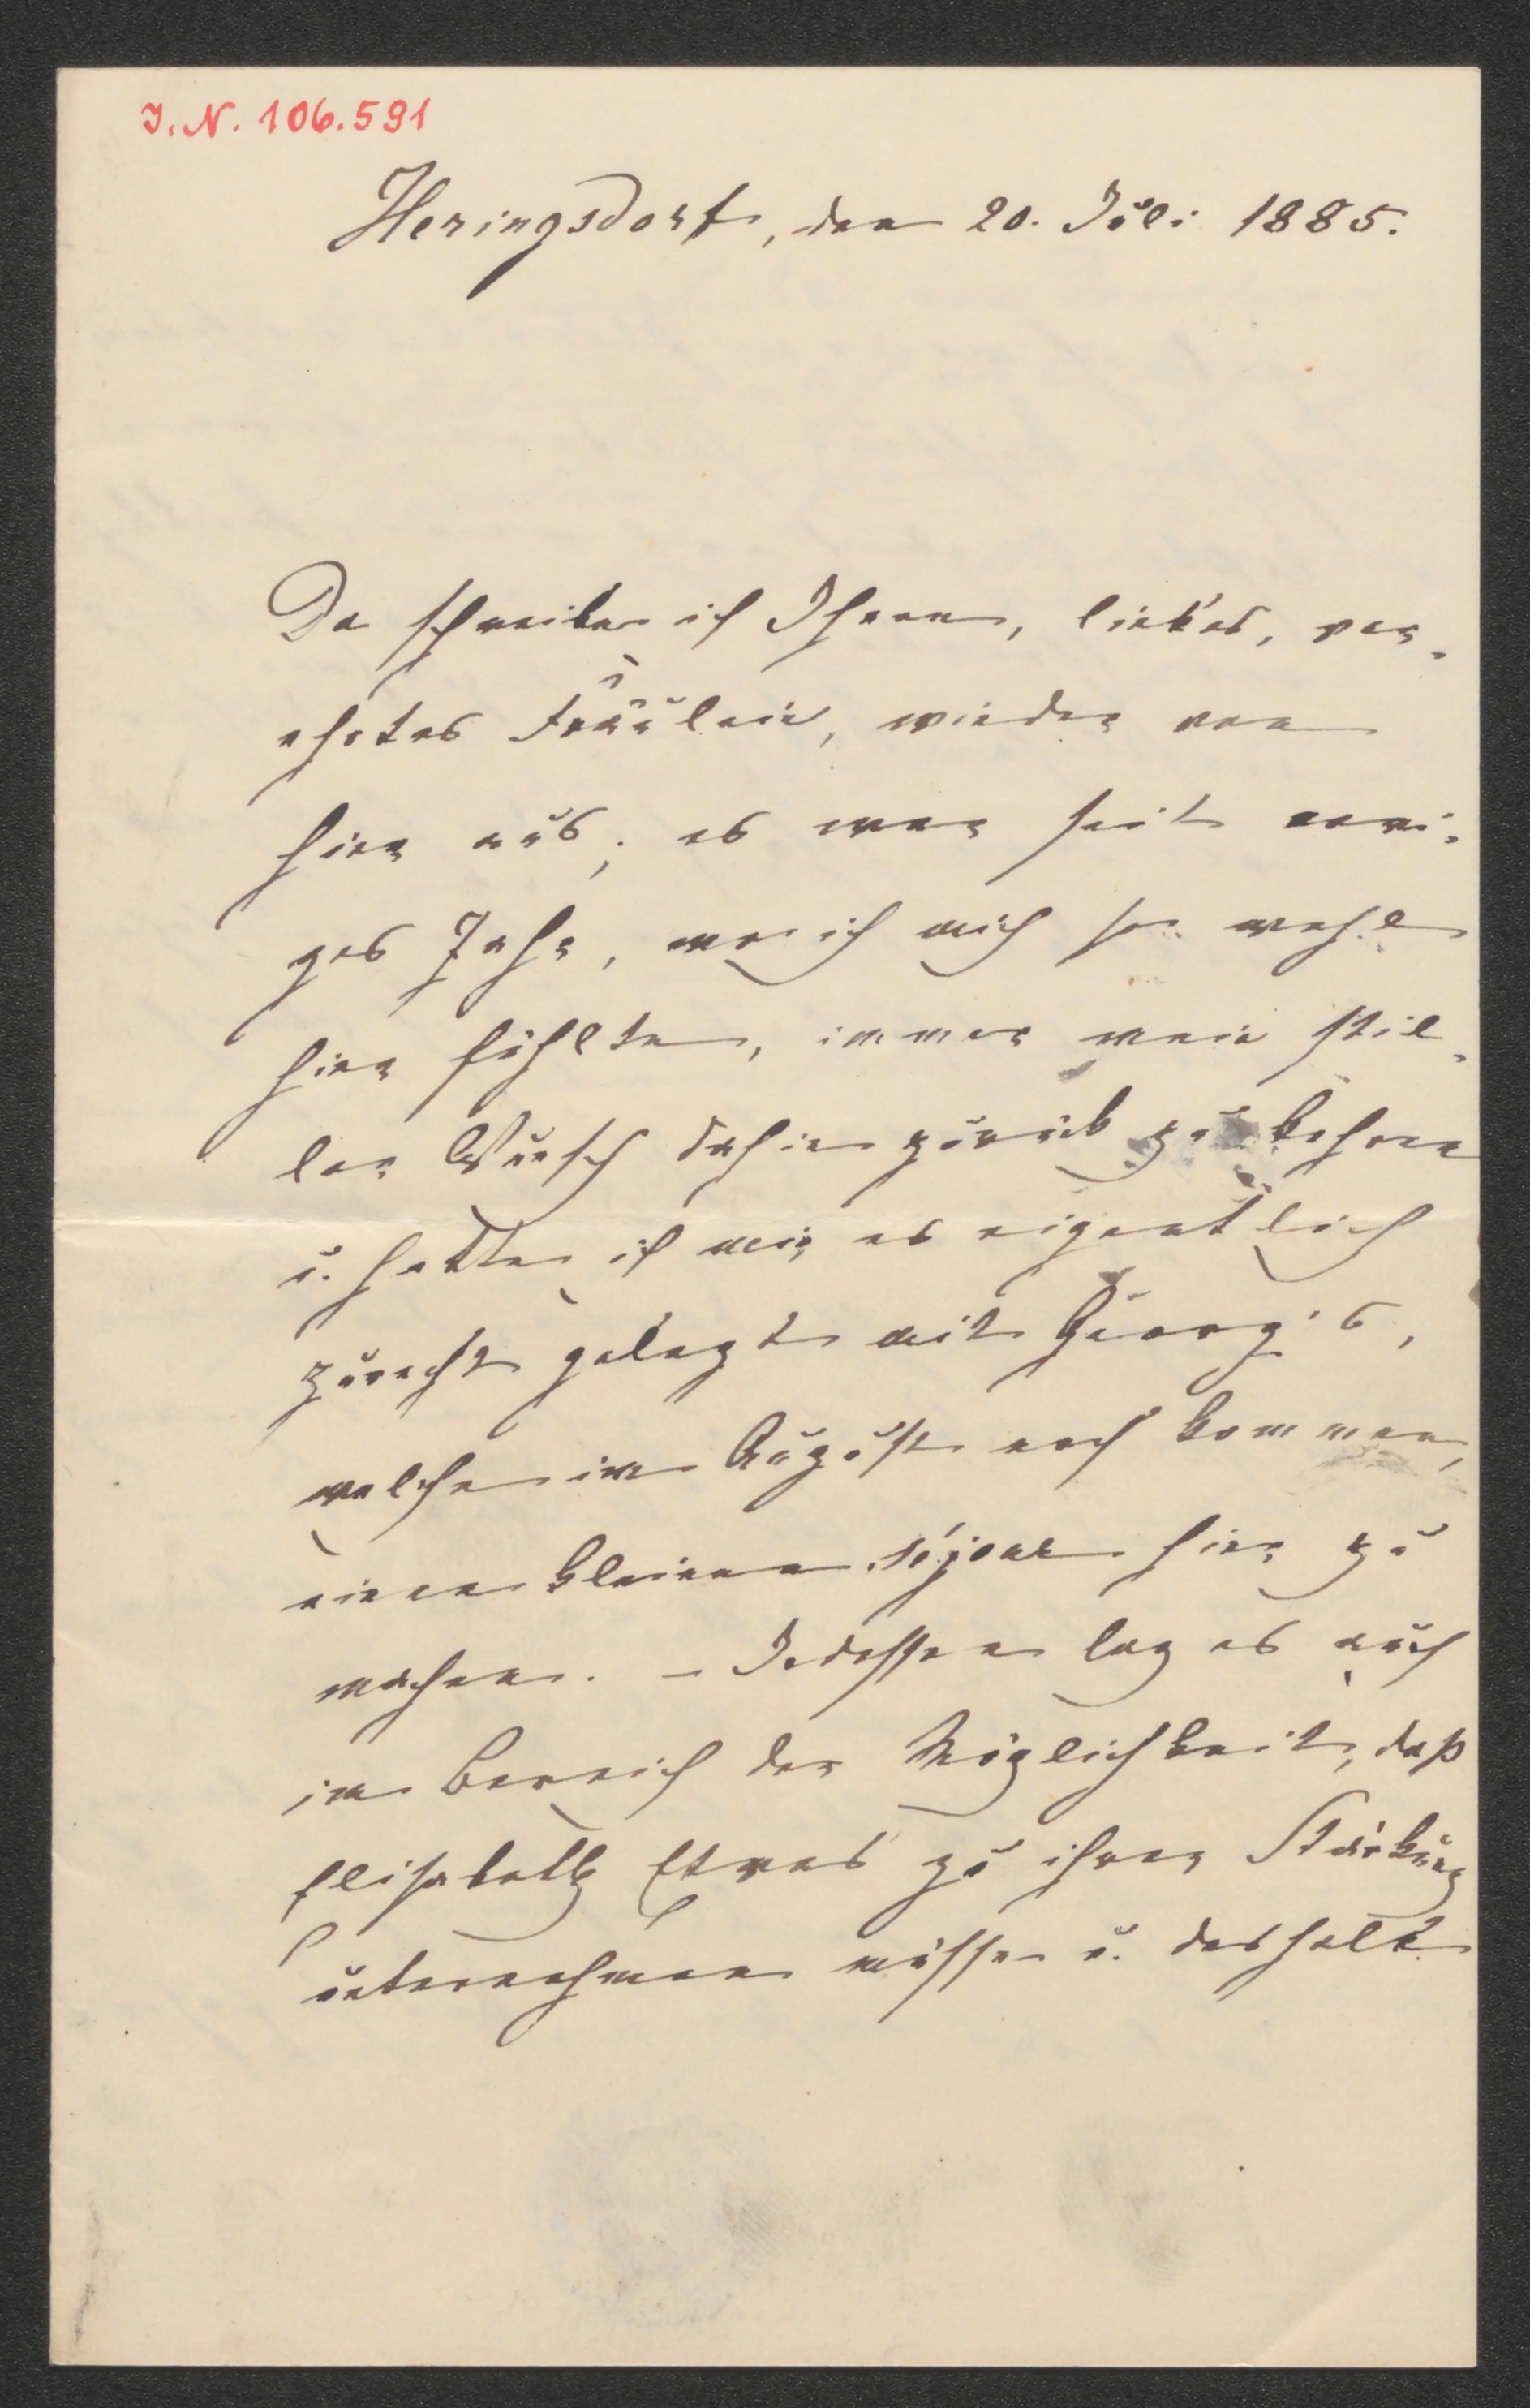 I. N. 106.591
Heringsdorf, den 20. Juli 1885.
Da schreibe ich Ihnen, liebes, ver-
ehrtes Fräulein, wieder von
hier aus; es war seit vori-
ges Jahr, wo ich mich so wohl
hier fühlte, immer mein stil-
ler Wunsch dahin zurück zu kehren
u. hatte ich mir es eigentlich
zurecht gelegt mit Georg's,
welche im August noch kommen,
einen kleinen séjour hier zu
machen. – Indessen lag es auch
im Bereich der Möglichkeit, daß
Elisabeth Etwas zu ihrer Stärkung
unternehmen müsse u. deshalb